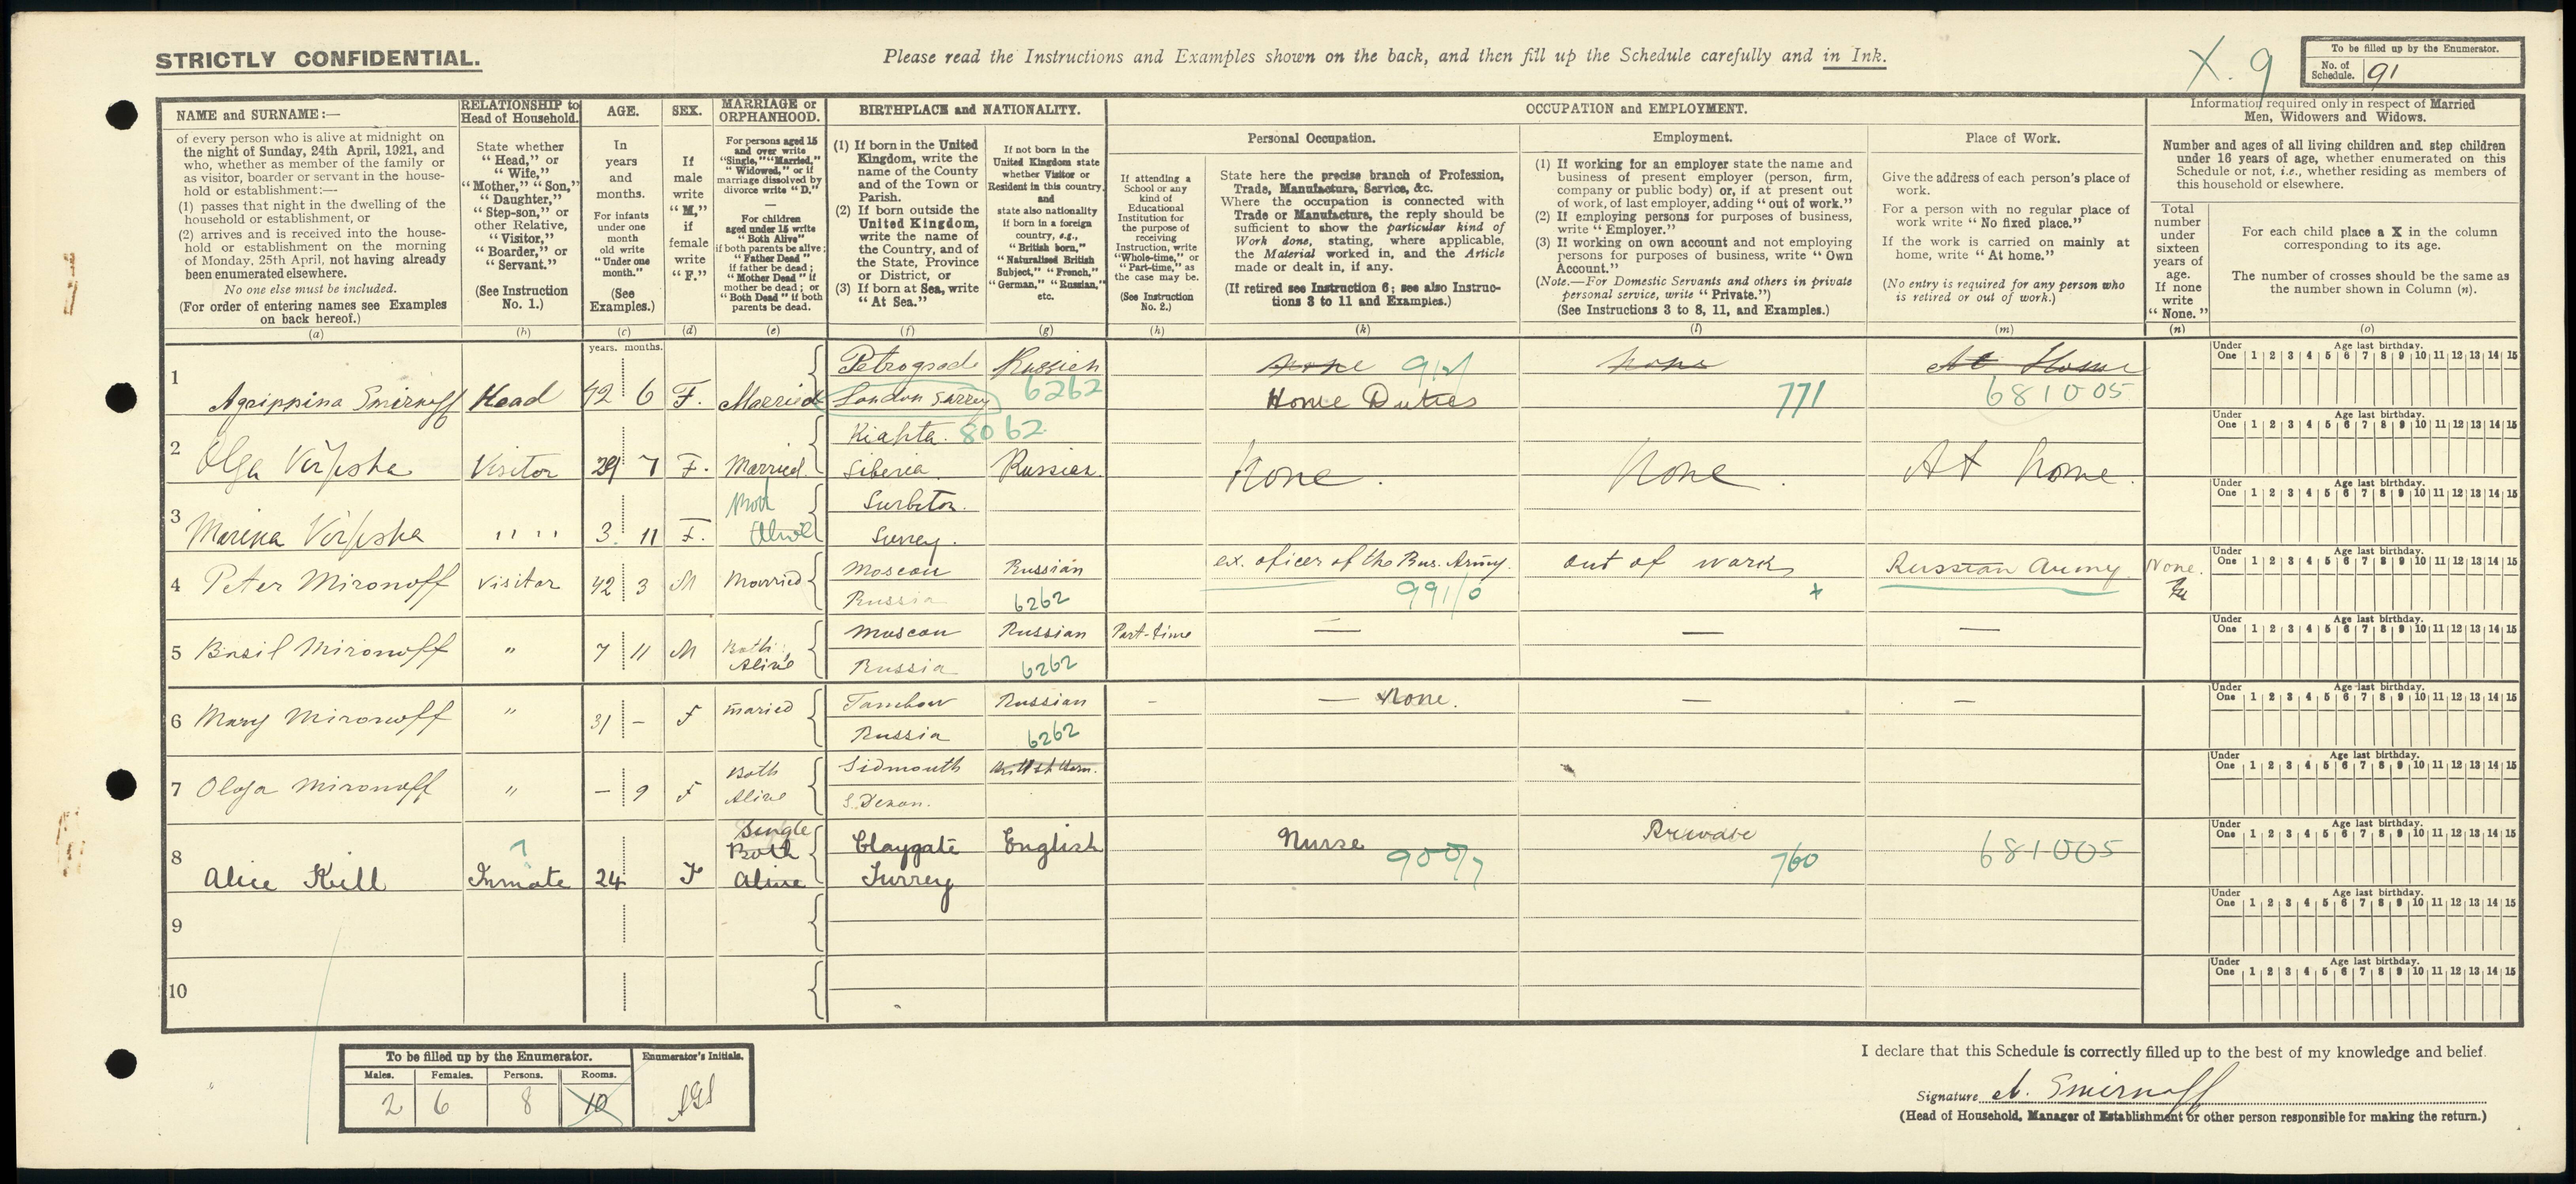 STRICTLY CONFIDENTIAL.
Please read the Instructions and Examples shown on the back, and then fill up the Schedule carefully and in Ink.
X. 9
To be filled up by the Enumerator.
No. of Schedule. 91
NAME and SURNAME:—
of every person who is alive at midnight on
the night of Sunday, 24th April, 1921, and
who, whether as member of the family or
as visitor, boarder or servant in the house-
hold or establishment:—
(1) passes that night in the dwelling of the
household or establishment, or
(2) arrives and is received into the house-
hold or establishment on the morning
of Monday, 25th April, not having already
been enumerated elsewhere.
No one else must be included.
(For order of entering names see Examples
on back hereof.)
(a)
RELATIONSHIP to
Head of Household.
State whether
"Head," or
"Wife,"
"Mother," "Son,"
"Daughter,"
"Step-son," or
other Relative,
"Visitor,"
"Boarder," or
"Servant."
(See Instruction
No. 1.)
(b)
AGE.
In
years
and
months.
For infants
under one
month
old write
"Under one
month."
(See
Examples.)
(c)
SEX.
If
male
write
"M,"
if
female
write
"F."
(d)
MARRIAGE or
ORPHANHOOD.
For persons aged 15
and over write
"Single," "Married,"
"Widowed," or if
marriage dissolved by
divorce write "D."
—
For children
aged under 15 write
"Both Alive"
if both parents be alive;
"Father Dead"
if father be dead;
"Mother Dead" if
mother be dead; or
"Both Dead" if both
parents be dead.
(e)
BIRTHPLACE and NATIONALITY.
(1) If born in the United
Kingdom, write the
name of the County
and of the Town or
Parish.
(2) If born outside the
United Kingdom,
write the name of
the Country, and of
the State, Province
or District, or
(3) If born at Sea, write
"At Sea."
(f)
If not born in the
United Kingdom state
whether Visitor or
Resident in this country,
and
state also nationality
if born in a foreign
country, e.g.,
"British born,"
"Naturalised British
Subject," "French,"
"German," "Russian,"
etc.
(g)
OCCUPATION and EMPLOYMENT.
If attending a
School or any
kind of
Educational
Institution for
the purpose of
receiving
Instruction, write
"Whole-time," or
"Part-time," as
the case may be.
(See Instruction
No. 2.)
(h)
Personal Occupation.
State here the precise branch of Profession,
Trade, Manufacture, Service, &c.
Where the occupation is connected with
Trade or Manufacture, the reply should be
sufficient to show the particular kind of
Work done, stating, where applicable,
the Material worked in, and the Article
made or dealt in, if any.
(If retired see Instruction 6; see also Instruc-
tions 3 to 11 and Examples.)
(k)
Employment.
(1) If working for an employer state the name and
business of present employer (person, firm,
company or public body) or, if at present out
of work, of last employer, adding "out of work."
(2) If employing persons for purposes of business,
write "Employer."
(3) If working on own account and not employing
persons for purposes of business, write "Own
Account."
(Note.—For Domestic Servants and others in private
personal service, write "Private.")
(See Instructions 3 to 8, 11, and Examples.)
(l)
Place of Work.
Give the address of each person's place of
work.
For a person with no regular place of
work write "No fixed place."
If the work is carried on mainly at
home, write "At home."
(No entry is required for any person who
is retired or out of work.)
(m)
Information required only in respect of Married
Men, Widowers and Widows.
Number and ages of all living children and step children
under 16 years of age, whether enumerated on this
Schedule or not, i.e., whether residing as members of
this household or elsewhere.
Total
number
under
sixteen
years of
age.
If none
write
"None."
(n)
For each child place a X in the column
corresponding to its age.
The number of crosses should be the same as
the number shown in Column (n).
(o)
years. months.
Under One Age last birthday. 1 2 3 4 5 6 7 8 9 10 11 12 13 14 15
1 Agrippina Smirnoff Head 42 6 F. Married
Petrograd Russian
London Surrey 6262
none
Home Duties
none 771
At Home 681005
Under One Age last birthday. 1 2 3 4 5 6 7 8 9 10 11 12 13 14 15
2 Olga Visitor 29 7 F. Married
Kiahta. 8062
Siberia Russian
None. None. At home.
Under One Age last birthday. 1 2 3 4 5 6 7 8 9 10 11 12 13 14 15
3 Marina " " 3 11 F. Both Alive
Surbiton.
Surrey.
Under One Age last birthday. 1 2 3 4 5 6 7 8 9 10 11 12 13 14 15
4 Peter Mironoff Visitor 42 3 M Married
Moscou Russian
Russia 6262
ex. oficer of the Rus. Army.
991/0
out of work
Russian Army
None.
Under One Age last birthday. 1 2 3 4 5 6 7 8 9 10 11 12 13 14 15
5 Basil Mironoff " 7 11 M Both Alive
Moscou Russian Part-time — — —
Russia 6262
Under One Age last birthday. 1 2 3 4 5 6 7 8 9 10 11 12 13 14 15
6 Mary Mironoff " 31 – F maried
Tambow Russian – — None. — —
Russia 6262
Under One Age last birthday. 1 2 3 4 5 6 7 8 9 10 11 12 13 14 15
7 Olga Mironoff " — 9 F Both Alive
Sidmouth
S. Devon.
Under One Age last birthday. 1 2 3 4 5 6 7 8 9 10 11 12 13 14 15
8 Alice Inmate 24 F Single Both Alive
Claygate English
Surrey
Nurse 900/7
Private 760
681005
Under One Age last birthday. 1 2 3 4 5 6 7 8 9 10 11 12 13 14 15
9
Under One Age last birthday. 1 2 3 4 5 6 7 8 9 10 11 12 13 14 15
10
To be filled up by the Enumerator.
Enumerator's Initials.
Males. Females. Persons. Rooms.
2 6 8 10
I declare that this Schedule is correctly filled up to the best of my knowledge and belief.
Signature A. Smirnoff
(Head of Household, Manager of Establishment or other person responsible for making the return.)